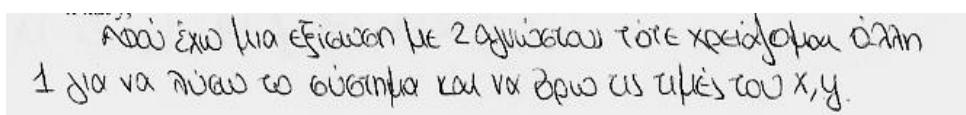 Αφού έχω μια εξίσωση με 2 αγνώστους τότε χρειάζομαι άλλη
1 για να λύσω το σύστημα και να βρω τις τιμές του x,y.